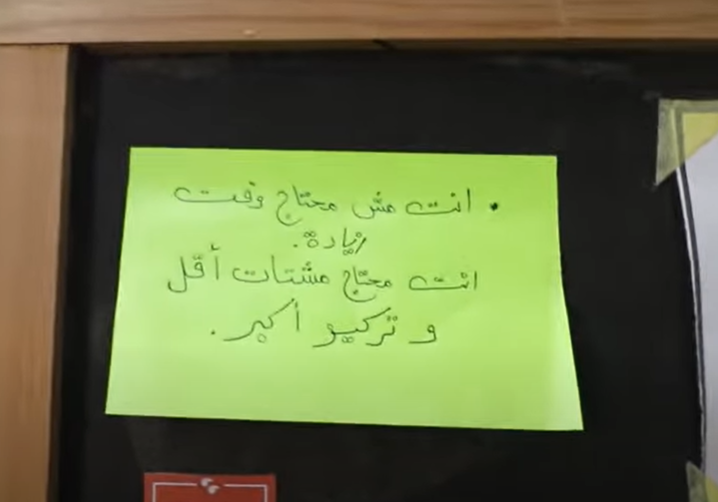 • انت مش محتاج وقت
زيادة.
انت محتاج مشتتات أقل
و تركيز أكبر.